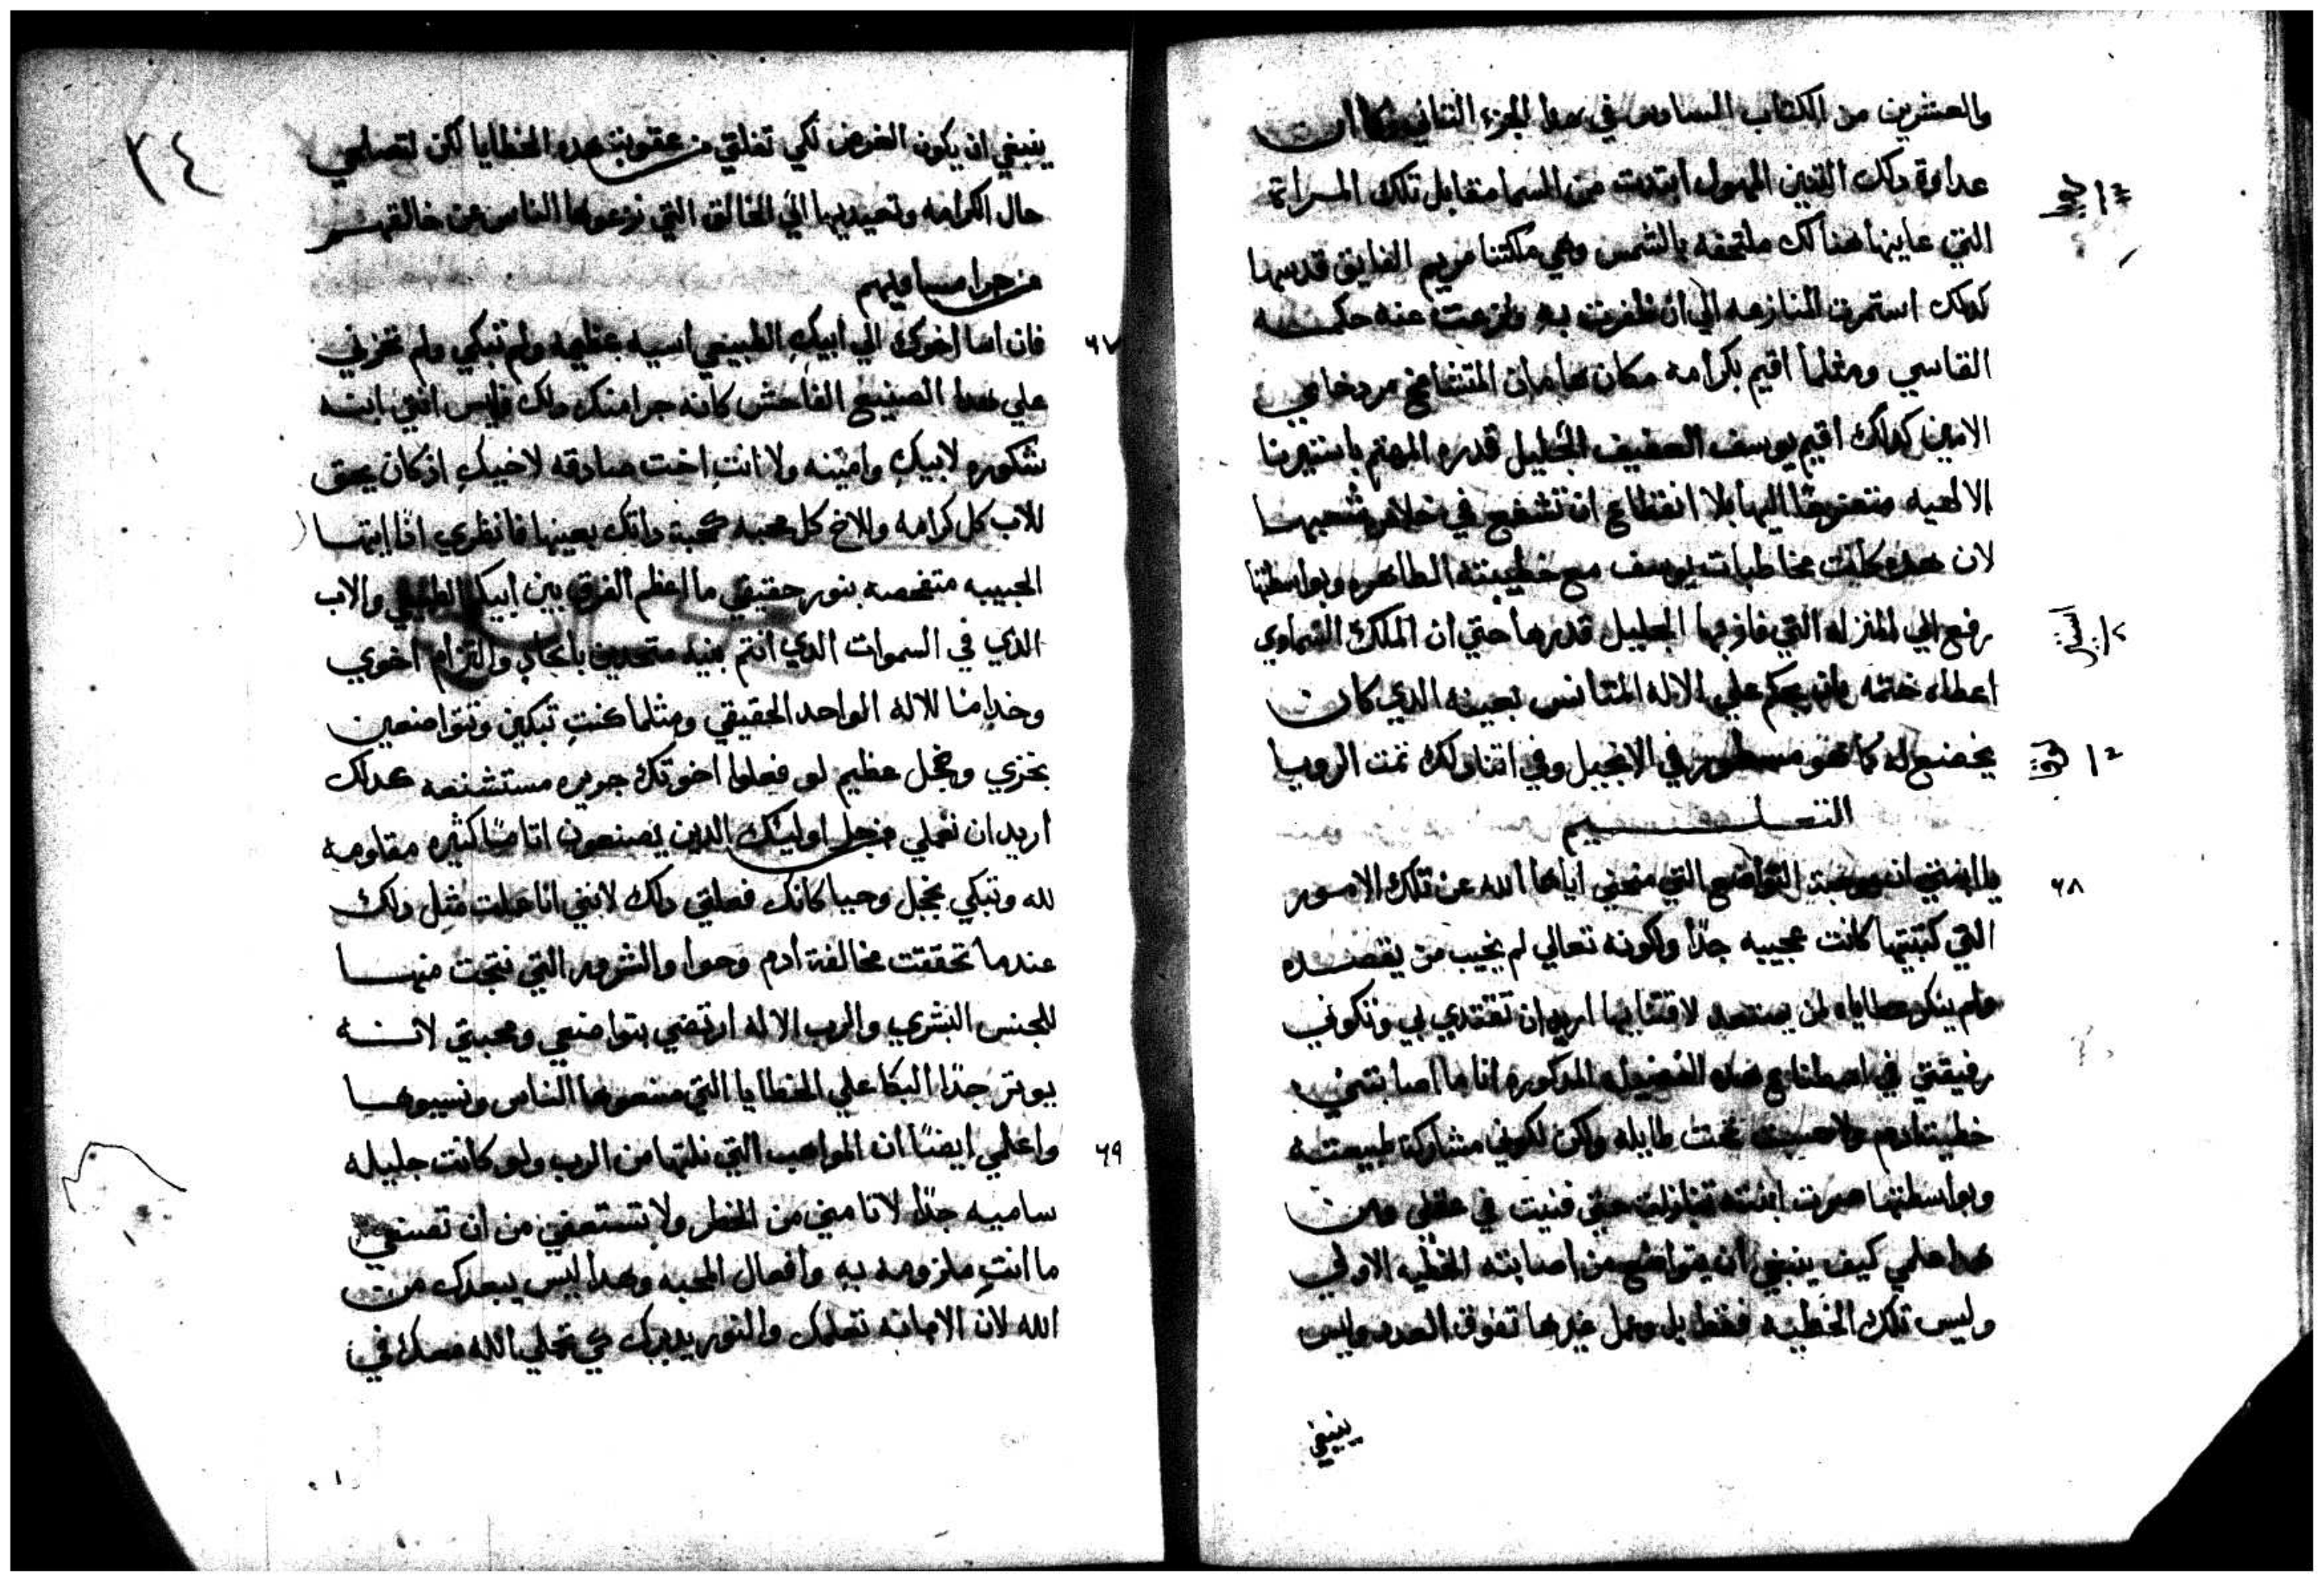 والعشرين من الكتاب السادس في هدا الجزء التاني وكما ان
عداوة دلك التنين المهول ابتدت من السما مقابل تلك المراة
التي عاينها هنالك ملتحفه بالشمس وهي ملكتنا مريم الفايق قدسها
كدلك استمرت المنازعه الي ان ظفرت به ونزعت عنه حكمه
القاسي ومثلما اقيم بكرامه مكان هامان المتشامخ مردخاي
الامين كدلك اقيم يوسف العفيف الجليل قدره المهتم باستيرنا
الالهيه متضرعًا اليها بلا انقطاع ان تشفع في خلاص شعبها
لان هده كانت مخاطبات يوسف مع خطيبته الطاهره وبواسطتها
رفع الي المنزله التي فاز بها الجليل قدرها حتي ان الملك السماوي
اعطاه ختمه بان يحكم علي الاله المتانس بعينه الدي كان
يخضع له كما هو مسطور في الانجيل وفي اتنا دلك تمت الرويا
التعليم
٦٨
يا ابنتي ان موهبة التواضع التي منحني اياها الله عن تلك الامور
التي كتبتيها كانت عجيبه جدًا ولكونه تعالي لم يخيب من يقصده
ولم ينكر عطاياه لمن يستعد لاقتنايها اريد ان تقتدي بي وتكوني
رفيقتي في اصطناع هده الفضيله المدكوره انا ما اصابتني
خطية ادم ولا حسبت تحت طايله ولكن لكوني مشاركة طبيعته
وبواسطتها صرت ابنته تنازلت حتي فنيت في عقلي فمن
هدا اعلمي كيف ينبغي ان يتواضع من اصابته الخطيه الاولي
وليس تلك الخطيه فقط بل وعمل غيرها تفوق العدد وليس
ينبغي
٣٤
ينبغي ان يكون الغرض لكي تفلتي من عقوبة هده الخطايا لكن لتصلحي
حال الكرامه وتعيديها الي الخالق التي نزعوها الناس عن خالقهم
من جرا مساويهم
٦٧
فان اسا اخوك الي ابيكِ الطبيعي اسيه عظيمه ولم تبكي ولم تحزني
علي هدا الصنيع الفاحش كانه جرا منك دلك فليس انتي ابنه
شكوره لابيكِ وامينه ولا انتِ اخت صادقه لاخيكِ اذ كان يحق
للاب كل كرامه وللاخ كل محبه كمحبة داتك بعينها فانظري اذًا ايتها
الحبيبه متفحصه بنور حقيقي ما اعظم الفرق بين ابيكِ الطبيعي والاب
الذي في السموات الدي انتم بنيه متحدين باتحادٍ والتزام اخوي
وخدامًا للاله الواحد الحقيقي ومثلما كنتِ تبكين وتتواضعين
بخزي وخجل عظيم لو فعلوا اخوتك جريره مستشنعه هكدا
اريد ان تعملي من اجل اوليك الدين يصنعون اتامًا كثيره مقاومه
لله وتبكي بخجل وحيا كانك فعلتي دلك لانني انا عملت مثل دلك
عندما تحققت مخالفة أدم وحوا والشرور التي نتجت منها
للجنس البشري والرب الاله ارتضي بتواضعي ومحبتي لانه
يوتر جدًا البكا علي الخطايا التي صنعوها الناس ونسيوها
٦٩
واعلمي ايضًا ان المواهب التي نلتها من الرب ولو كانت جليله
ساميه جدًا لا تامني من الخطر ولا تستعفي من ان تصنعي
ما انتِ ملزومه به وافعال المحبه وهدا ليس يبعدك من
الله لان الامانه تعلمك والنور يدبرك كي تحلي الله معك في